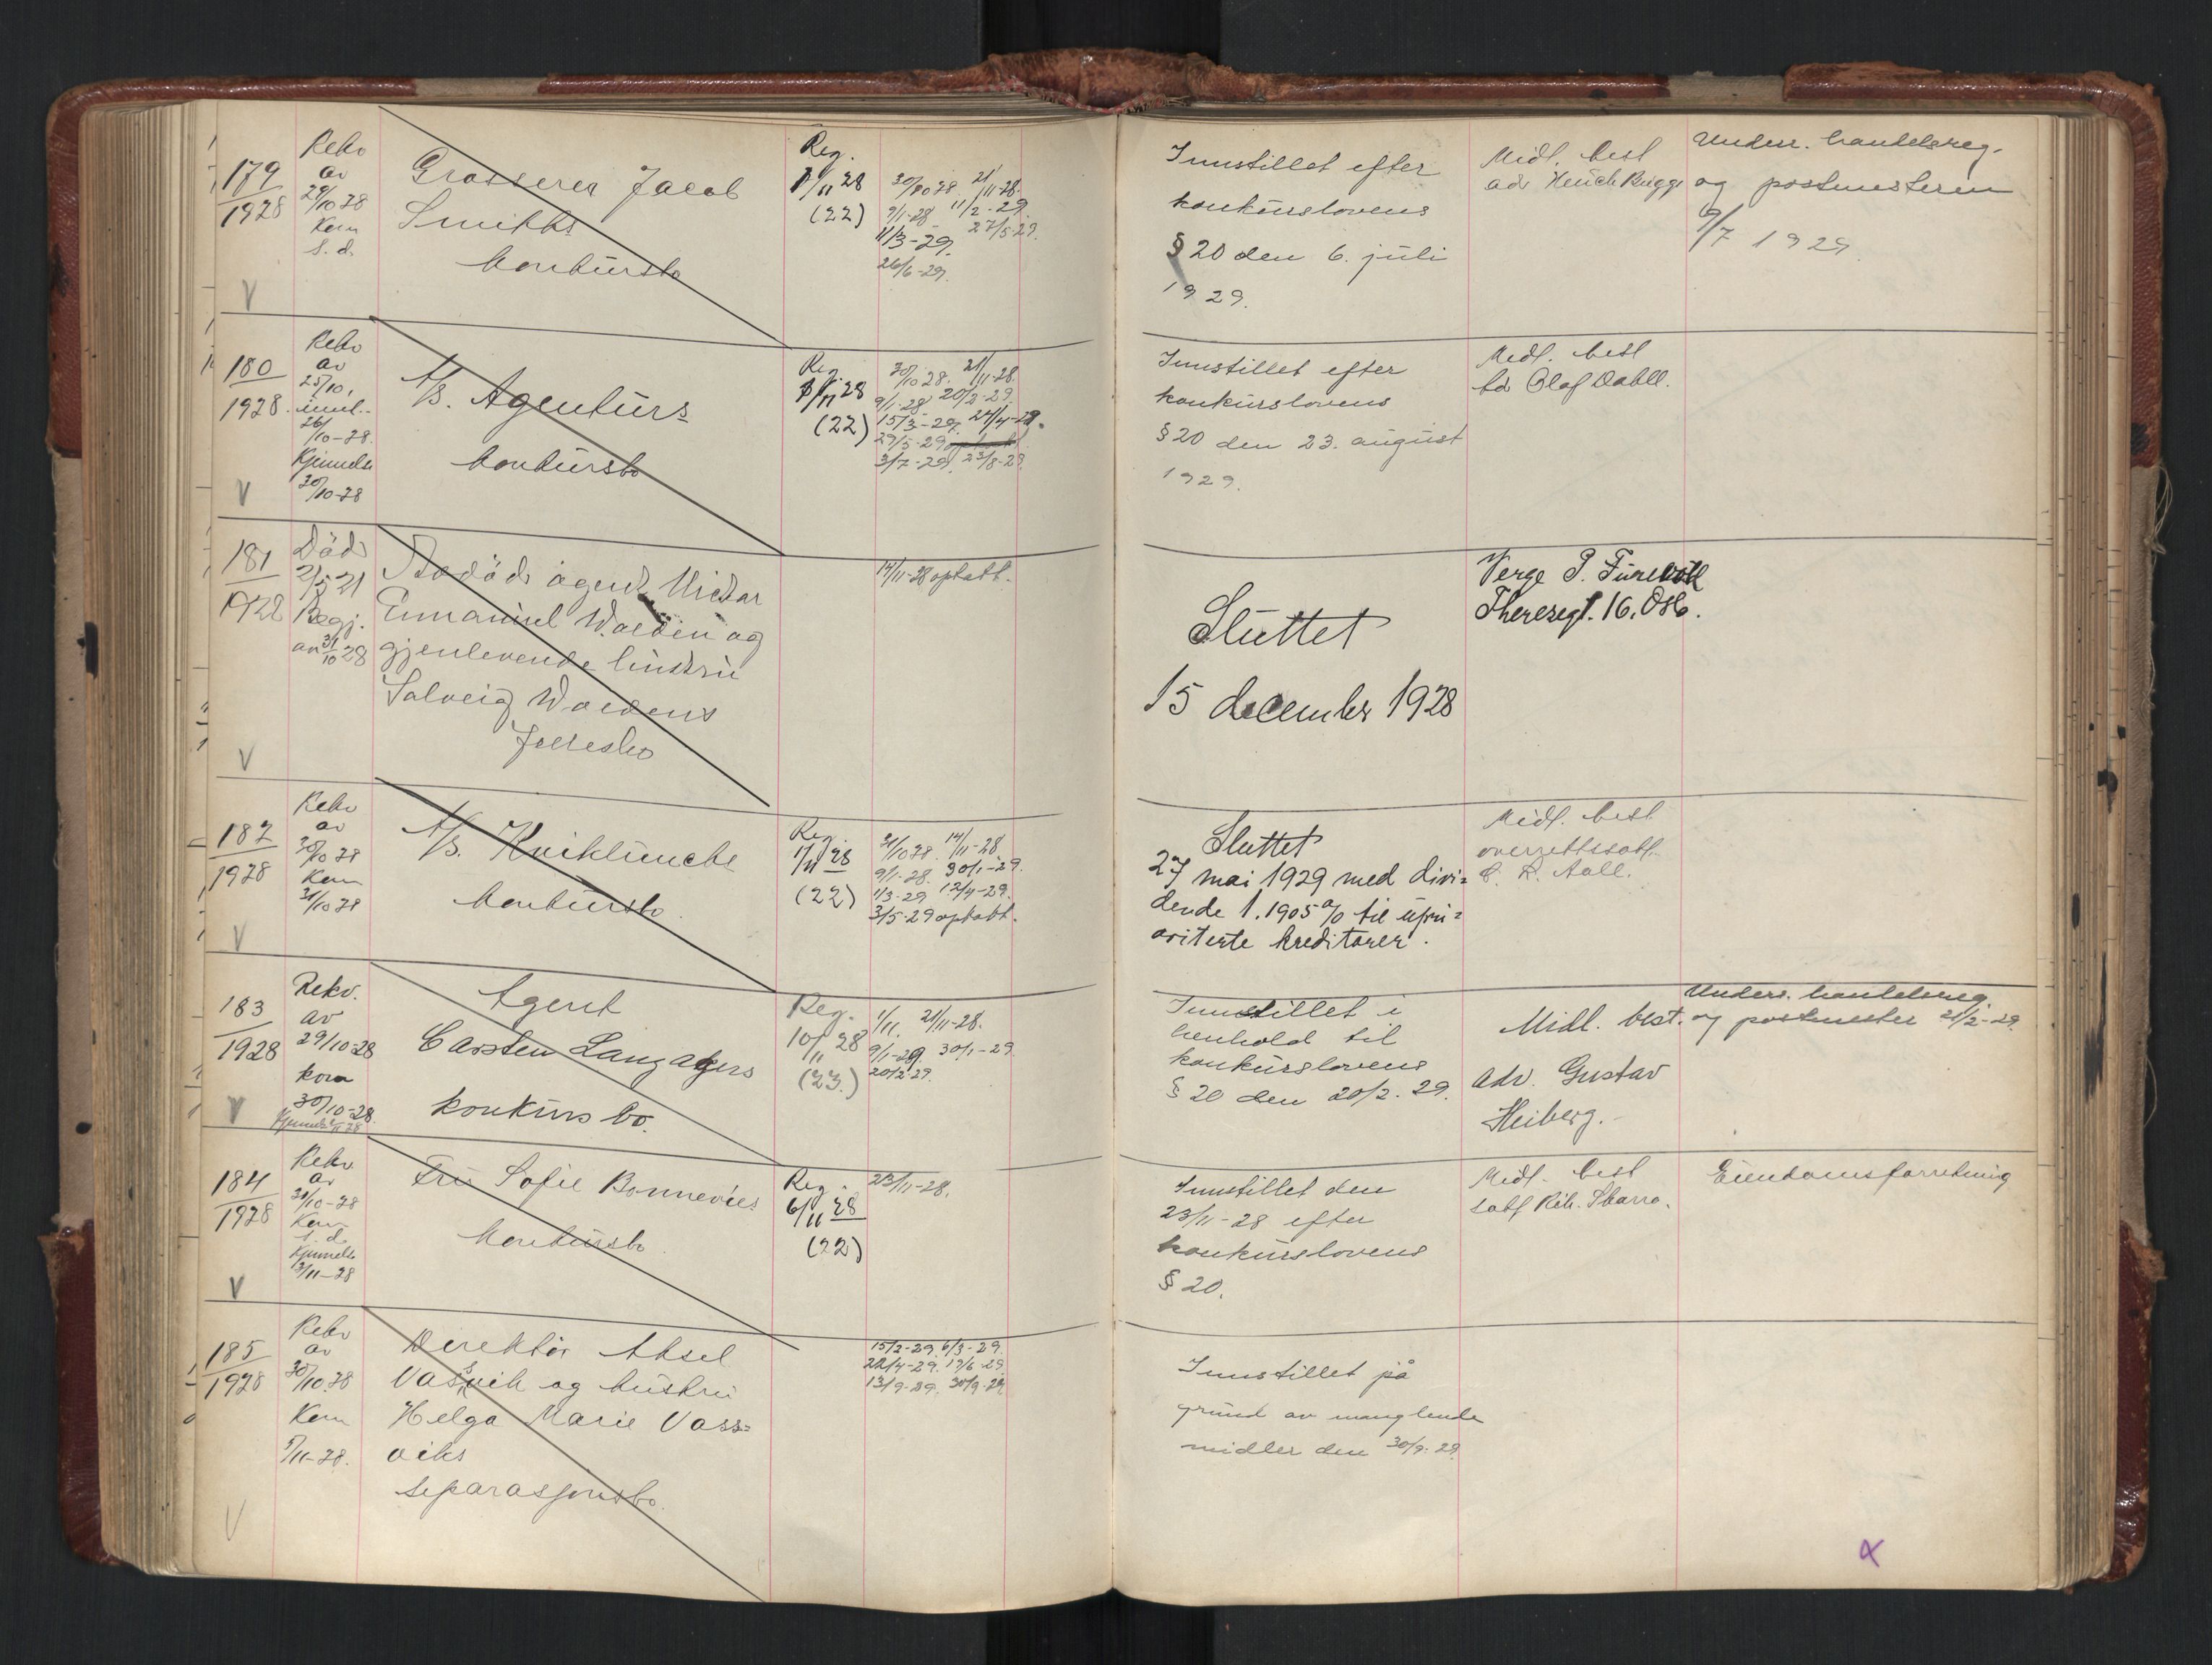 179
1928
Rekv
av
29/10 28
Kom
s. d.
V
Grosserer Jacob
Smiths
konkursbo
Reg.
1/11 28
(22)
30/10 28. 21/11-28.
9/1-28 11/2-29.
11/3-29. 27/5-29.
26/6-29.
Innstillet efter
konkurslovens
§ 20 den 6. juli
1929.
Midl. best
adv Henrich Bugge
Underr. handelsreg.
og postmesteren
9/7 1929.
180
1928.
Rekv
av
25/10,
innl.
26/10-28.
Kjennelse
30/10-28
V
A/S. Agenturs
konkursbo
Reg.
1/11 28
(22)
30/10 28. 21/11-28.
9/1-28 20/2-29.
15/3-29. 24/4-29.
29/5-29
3/7-29. 23/8-29.
Innstillet efter
konkurslovens
§ 20 den 23. august
1929.
Midl. best
Olaf Dahll.
181
1928
Död
2/5 21
Begj.
av 31/10 28
V
Avdöde agent
Emanuel og
gjenlevende hustru
Solveig
Fællesbo
14/11-28 optatt.
Sluttet
15 december 1928
Verge P. Furevoll
Theresegt. 16. Oslo.
182
1928
Rekv
av
30/10 28
Kom
31/10 28
V
A/S. Kviklunchs
konkursbo.
Reg.
1/11 28
(22)
31/10 28. 14/11-28
9/1-28. 30/1-29.
1/3-29 12/4-29.
3/5-29 optatt.
Sluttet
27 mai 1929 med divi=
dende 1.1905 % til upri=
oriterte kreditorer.
Midl. best
overrettssakf.
Aall.
183
1928
Rekv.
av
29/10-28
kom
30/10-28.
Kjennelse
V
Agent
Carsten Langakers
konkurs bo.
Reg.
10/11 28
(23.)
1/11. 21/11-28.
9/1-29. 30/1-29
20/2 29.
Innstillet i
henhold til
konkurslovens
§ 20 den 20/2. 29.
Midl. best.
Adv. Gustav
Heiberg.
Underr. handelsreg.
og postmester 21/2-29.
184
1928
Rekv
av
31/10-28
Kom
s. d.
Kjennelse
V
Fru Sofie Bonnevies
konkursbo
Reg.
6/11 28
(22)
23/11-28.
Innstillet den
23/11-28 efter
konkurslovens
§ 20.
Midl. best
sakf Rih. Skarra.
Eiendomsforretning
185
1928
Rekv
av
30/10.28
Kom
V
Direktör Aksel
Vassvik og hustru
Helga Marie Vass=
viks
separasjonsbo.
15/2-29. 6/3-29.
22/4-29. 19/6-29
13/9-29. 30/9-29
Innstillet på
grund av manglende
midler den 30/9-29.